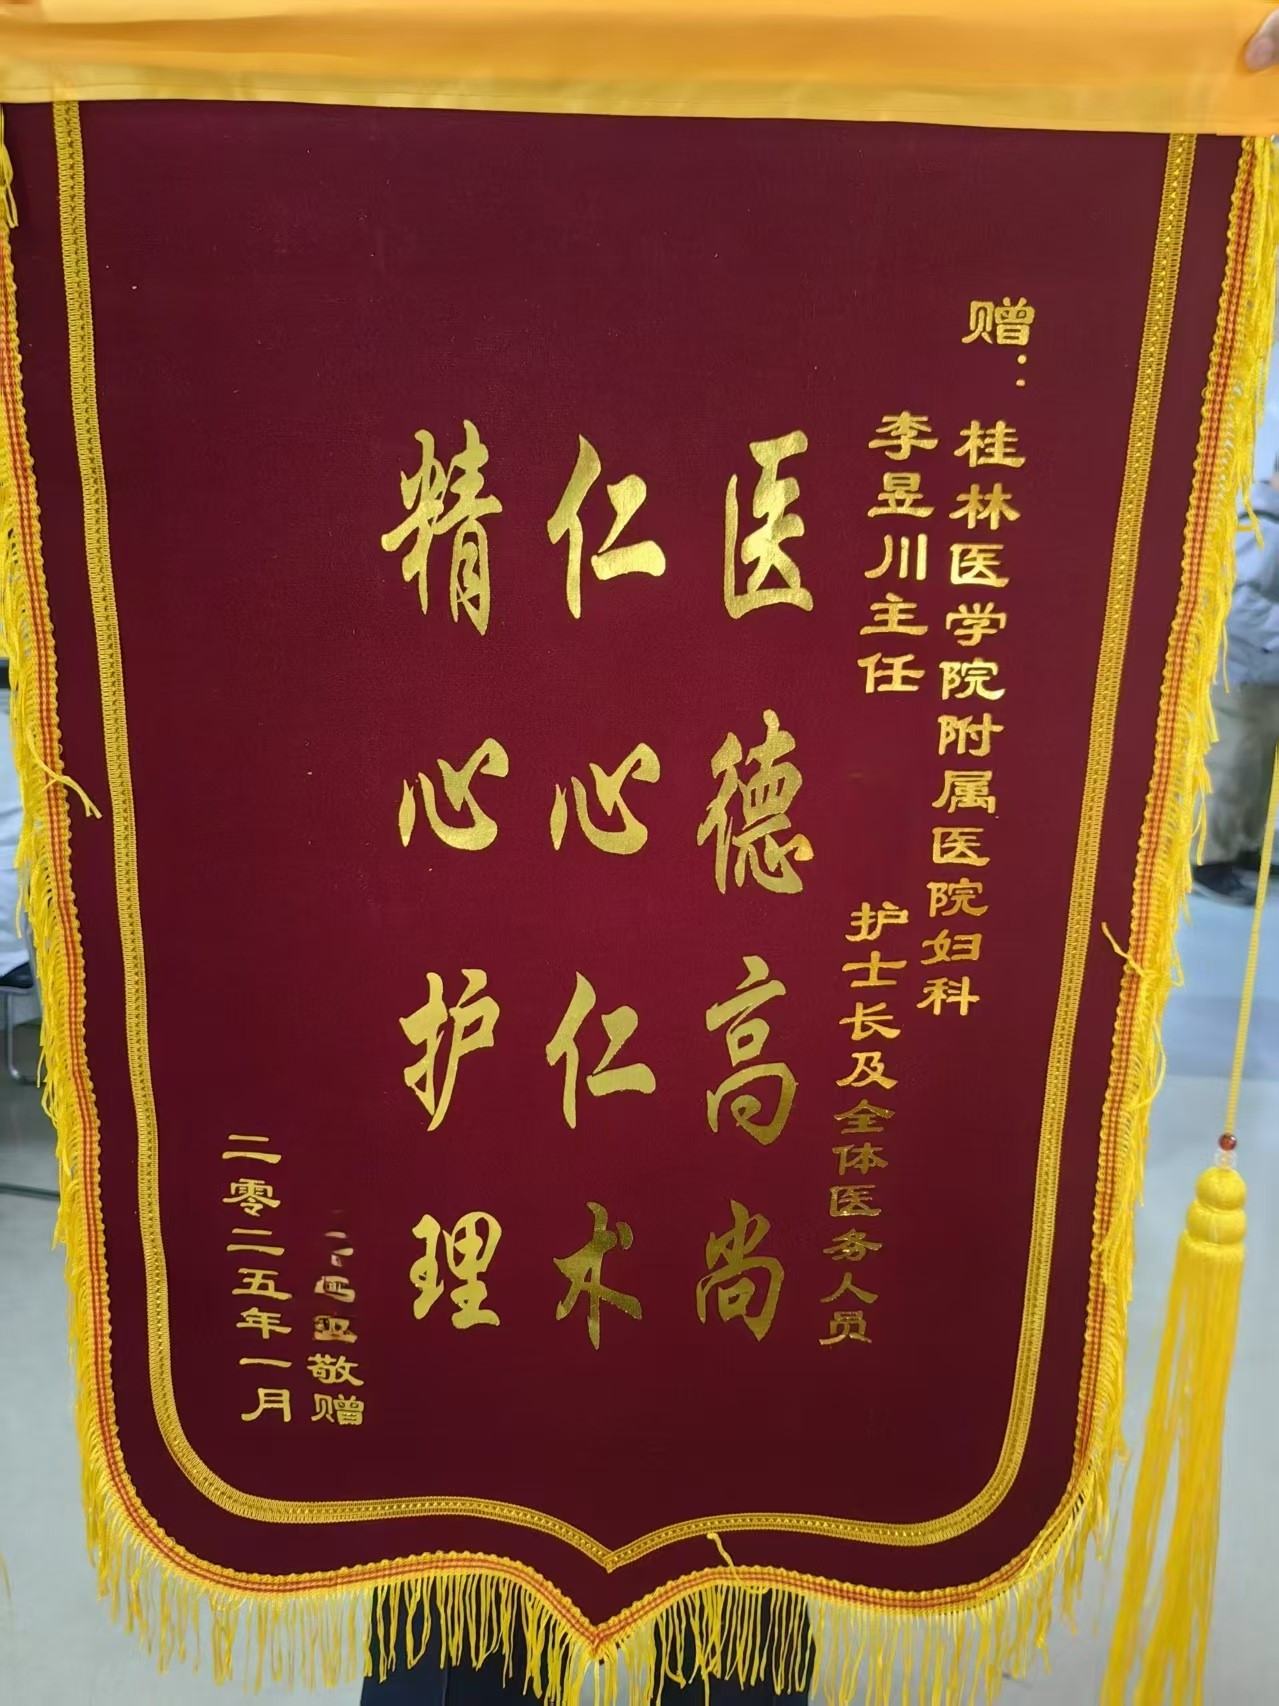 赠：桂林医学院附属医院妇科
李昱川主任
护士长及全体医务人员
医德高尚
仁心仁术
精心护理
敬赠
二零二五年一月